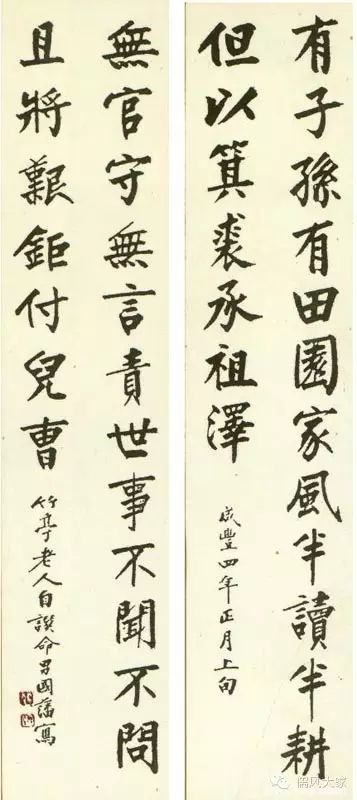 有子孫有田園家風半讀半耕
但以箕裘承祖澤
咸豐四年正月上旬
無官守無言責世事不聞不問
且將艱鉅付兒曹
竹亭老人自譔命男國藩寫
儒风大家